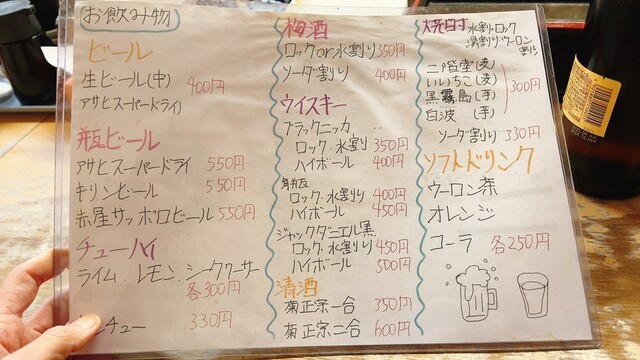 お飲み物
ビール
生ビール(中) 400円
アサヒスーパードライ)
瓶ビール
アサヒスーパードライ 550円
キリンビール 550円
赤星サッポロビール 550円
チューハイ
ライム、レモン、シークワーサー
各300円
チュー 330円
梅酒
ロックor水割り 350円
ソーダ割り 400円
ウイスキー
ブラックニッカ
ロック・水割り 350円
ハイボール 400円
角瓶
ロック・水割り 400円
ハイボール 450円
ジャックダニエル黒
ロック・水割り 450円
ハイボール 500円
清酒
菊正宗一合 350円
菊正宗二合 600円
焼酎 水割・ロック
湯割り・ウーロン
割り
二階堂(麦)
いいちこ(麦)
黒霧島(芋)
白波(芋)
300円
ソーダ割り 330円
ソフトドリンク
ウーロン茶
オレンジ
コーラ 各250円